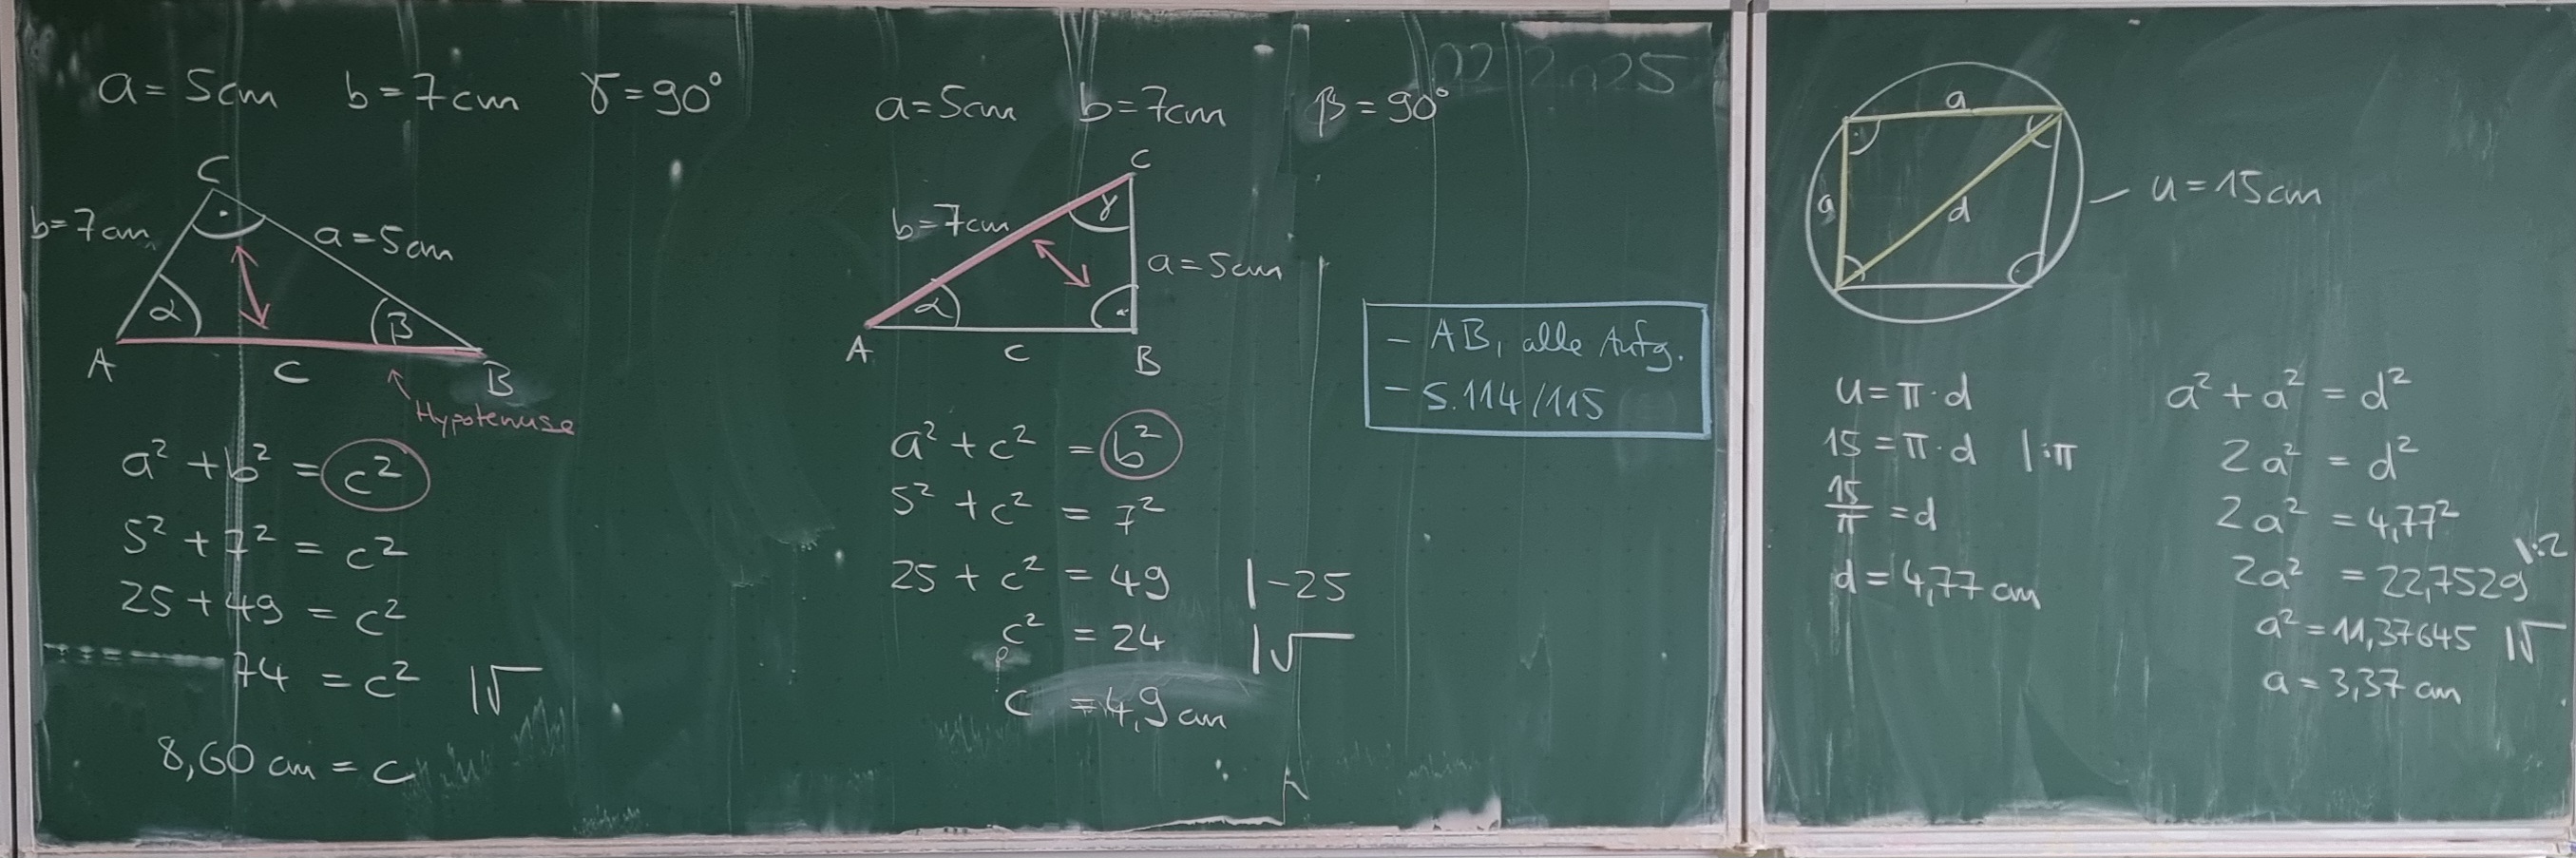 a = 5cm b = 7cm γ = 90°
C
b = 7cm a = 5cm
α β
A c B
Hypotenuse
a² + b² = c²
5² + 7² = c²
25 + 49 = c²
74 = c² |√
8,60 cm = c
a = 5cm b = 7cm β = 90°
C
b = 7cm γ
a = 5cm
α
A c B
a² + c² = b²
5² + c² = 7²
25 + c² = 49 |-25
c² = 24 |√
c = 4,9 cm
- AB, alle Aufg.
- S. 114/115
a
a d
u = 15cm
u = π · d
15 = π · d |:π
15/π = d
d = 4,77 cm
a² + a² = d²
2a² = d²
2a² = 4,77²
2a² = 22,7529 |:2
a² = 11,37645 |√
a = 3,37 cm